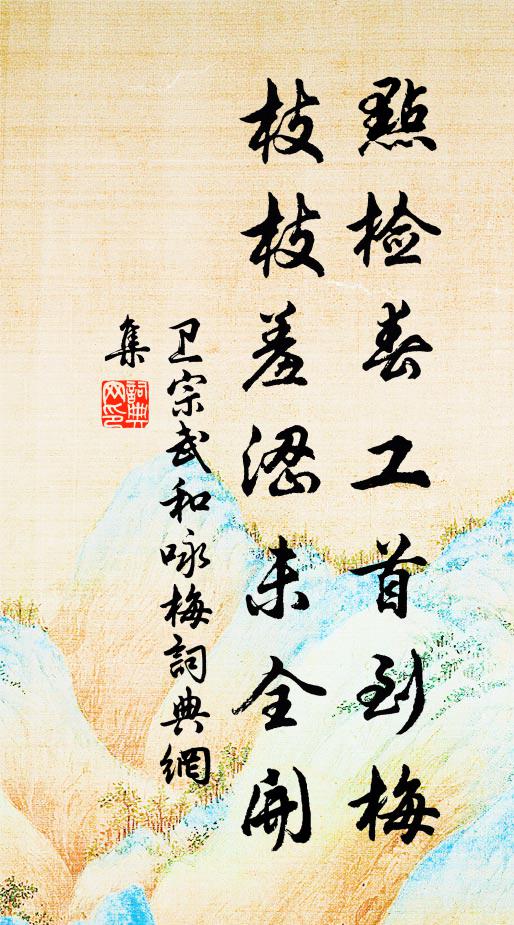 點檢春工首到梅
枝枝羞澀未全開
卫宗武和咏梅詞典網
集
詞典
网印